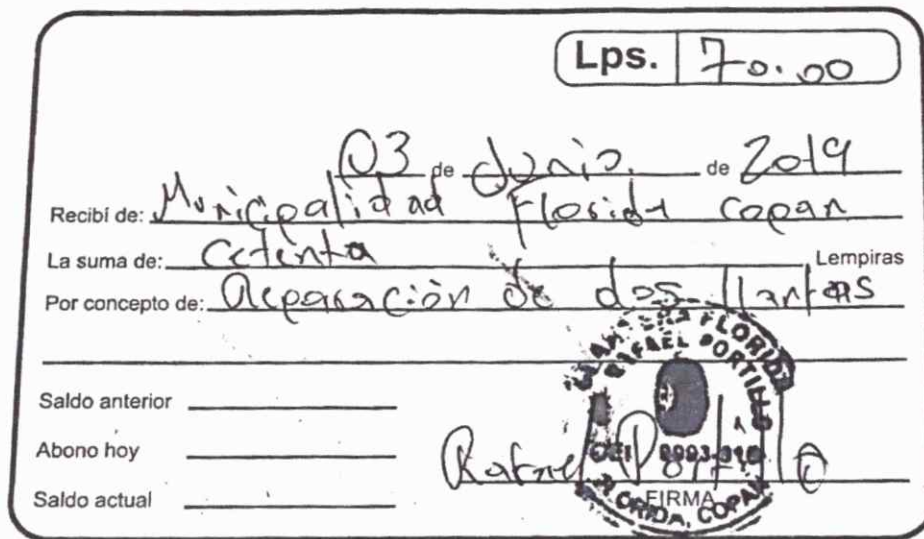 Lps. 70.00
03 de Junio de 2019
Recibí de: Municipalidad Florida Copan
La suma de: Cetenta Lempiras
Por concepto de: Reparación de dos llantas
Saldo anterior
Abono hoy
Saldo actual
Rafael Portillo
FIRMA
FLORIDA
RAFAEL PORTILLO
FLORIDA, COPAN